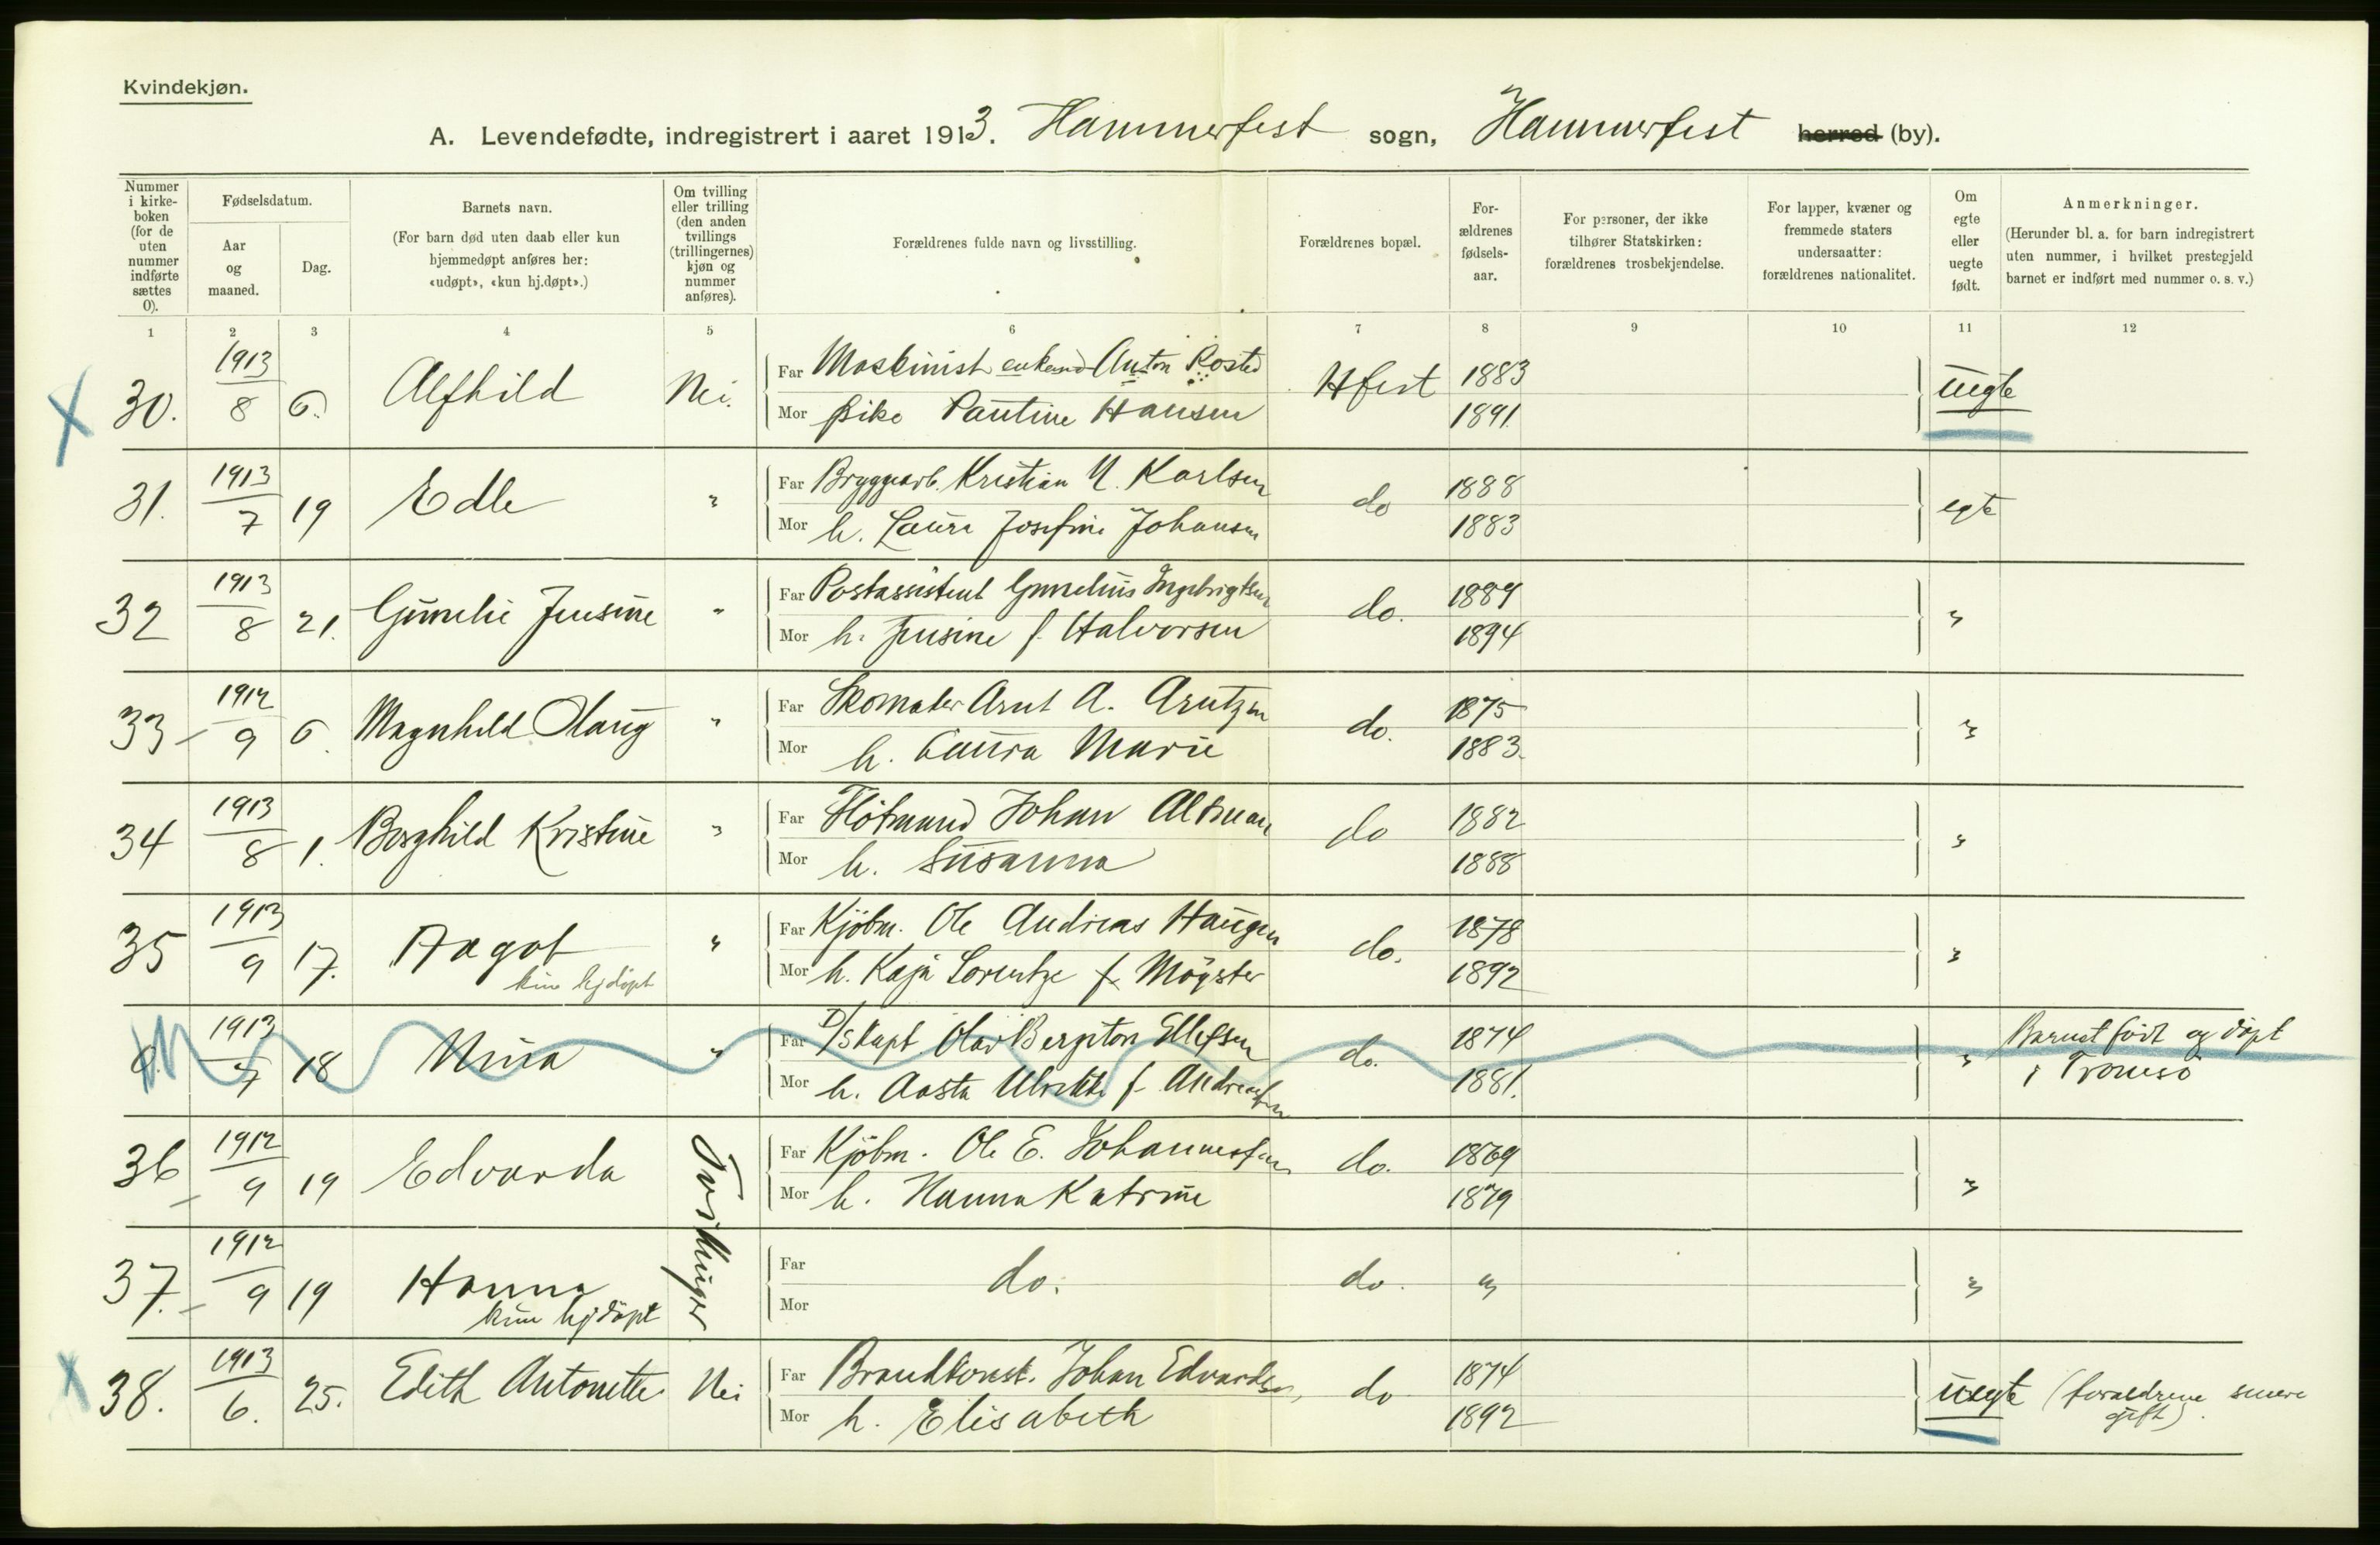 Kvindekjøn.
A. Levendefødte, indregistrert i aaret 1913. Hammerfest sogn, Hammerfest herred (by).
Nummer i kirke-boken (for de uten nummer indførte sættes 0).
Fødselsdatum.
Aar og maaned.
Dag.
Barnets navn.
(For barn død uten daab eller kun hjemmedøpt anføres her: «udøpt», «kun hj.døpt».)
Om tvilling eller trilling (den anden tvillings (trillingernes) kjøn og nummer anføres).
Forældrenes fulde navn og livsstilling.
Forældrenes bopæl.
For-ældrenes fødsels-aar.
For personer, der ikke tilhører Statskirken: forældrenes trosbekjendelse.
For lapper, kvæner og fremmede staters undersaatter: forældrenes nationalitet.
Om egte eller uegte født.
Anmerkninger.
(Herunder bl. a. for barn indregistrert uten nummer, i hvilket prestegjeld barnet er indført med nummer o. s. v.)
1 2 3 4 5 6 7 8 9 10 11 12
30. 1913/8 6. Alfhild Nei. Far Maskinist enkem Anton Rosted Hfest 1883 uegte
Mor pike Pauline Hansen 1891
31. 1913/7 19 Edle " Far Bryggearb. Kristian N. Karlsen do 1888 egte
Mor h. Laura Josefine Johansen 1883
32 1913/8 21. Gunelie Jensine " Far Postassistent Gunelius Ingebrigtsen do. 1889 "
Mor h. Jensine f. Halvorsen 1894
33 1912/9 6. Magnhild Olaug " Far Skomaker Arnt A. Arntzen do. 1875 "
Mor h. Laura Marie 1883.
34 1913/8 1. Borghild Kristine " Far Flötmand Johan Altman do 1882 "
Mor h. Susanna 1888
35 1913/9 17. Aagot " Far Kjöbm. Ole Andreas Haugen do. 1878 "
kun hjdöpt Mor h. Kaja Lorentze f. Mögster 1892
0. 1913/7 18 Nina " Far D/S kapt. Olav Bergiton Ellefsen do. 1874 " Barnet födt og döpt
Mor h. Aasta Ulrikke f. Andreassen 1881. i Tromsö
36 1912/9 19 Edvarda Tvillinger Far Kjöbm. Ole E. Johannessen do. 1869 "
Mor h. Hanna Katrine 1879
37. 1912/9 19 Hanna Far do. do. " "
kun hjdöpt Mor
38. 1913/6. 25. Edith Antonette Nei Far Brandkonst. Johan Edvardsen do 1874 uegte (forældrene senere
Mor h. Elisabeth 1892 gift).